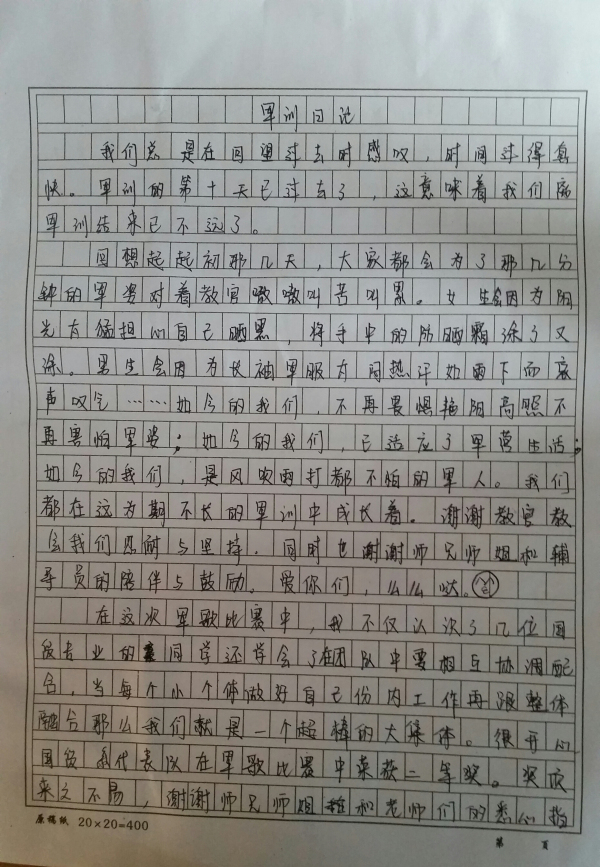 军训日记
我们总是在回望过去时感叹，时间过得真
快。军训的第十天已过去了，这意味着我们离
军训结束已不远了。
回想起起初那几天，大家都会为了那几分
钟的军姿对着教官嗷嗷叫苦叫累。女生会因为阳
光太猛担心自己晒黑，将手中的防晒霜涂了又
涂。男生会因为长袖军服太闷热汗如雨下而哀
声叹气……如今的我们，不再畏惧艳阳高照不
再害怕军姿；如今的我们，已适应了军营生活；
如今的我们，是风吹雨打都不怕的军人。我们
都在这为期不长的军训中成长着。谢谢教官教
会我们忍耐与坚持，同时也谢谢师兄师姐和辅
导员的陪伴与鼓励。爱你们，么么哒。
在这次军歌比赛中，我不仅认识了几位国
贸专业的同学还学会了在团队中要相互协调配
合，当每个小个体做好自己份内工作再跟整体
融合那么我们就是一个超棒的大集体。很开心
国贸代表队在军歌比赛中荣获二等奖。奖项
来之不易，谢谢师兄师姐和老师们的悉心指
原稿纸 20×20=400
第 页